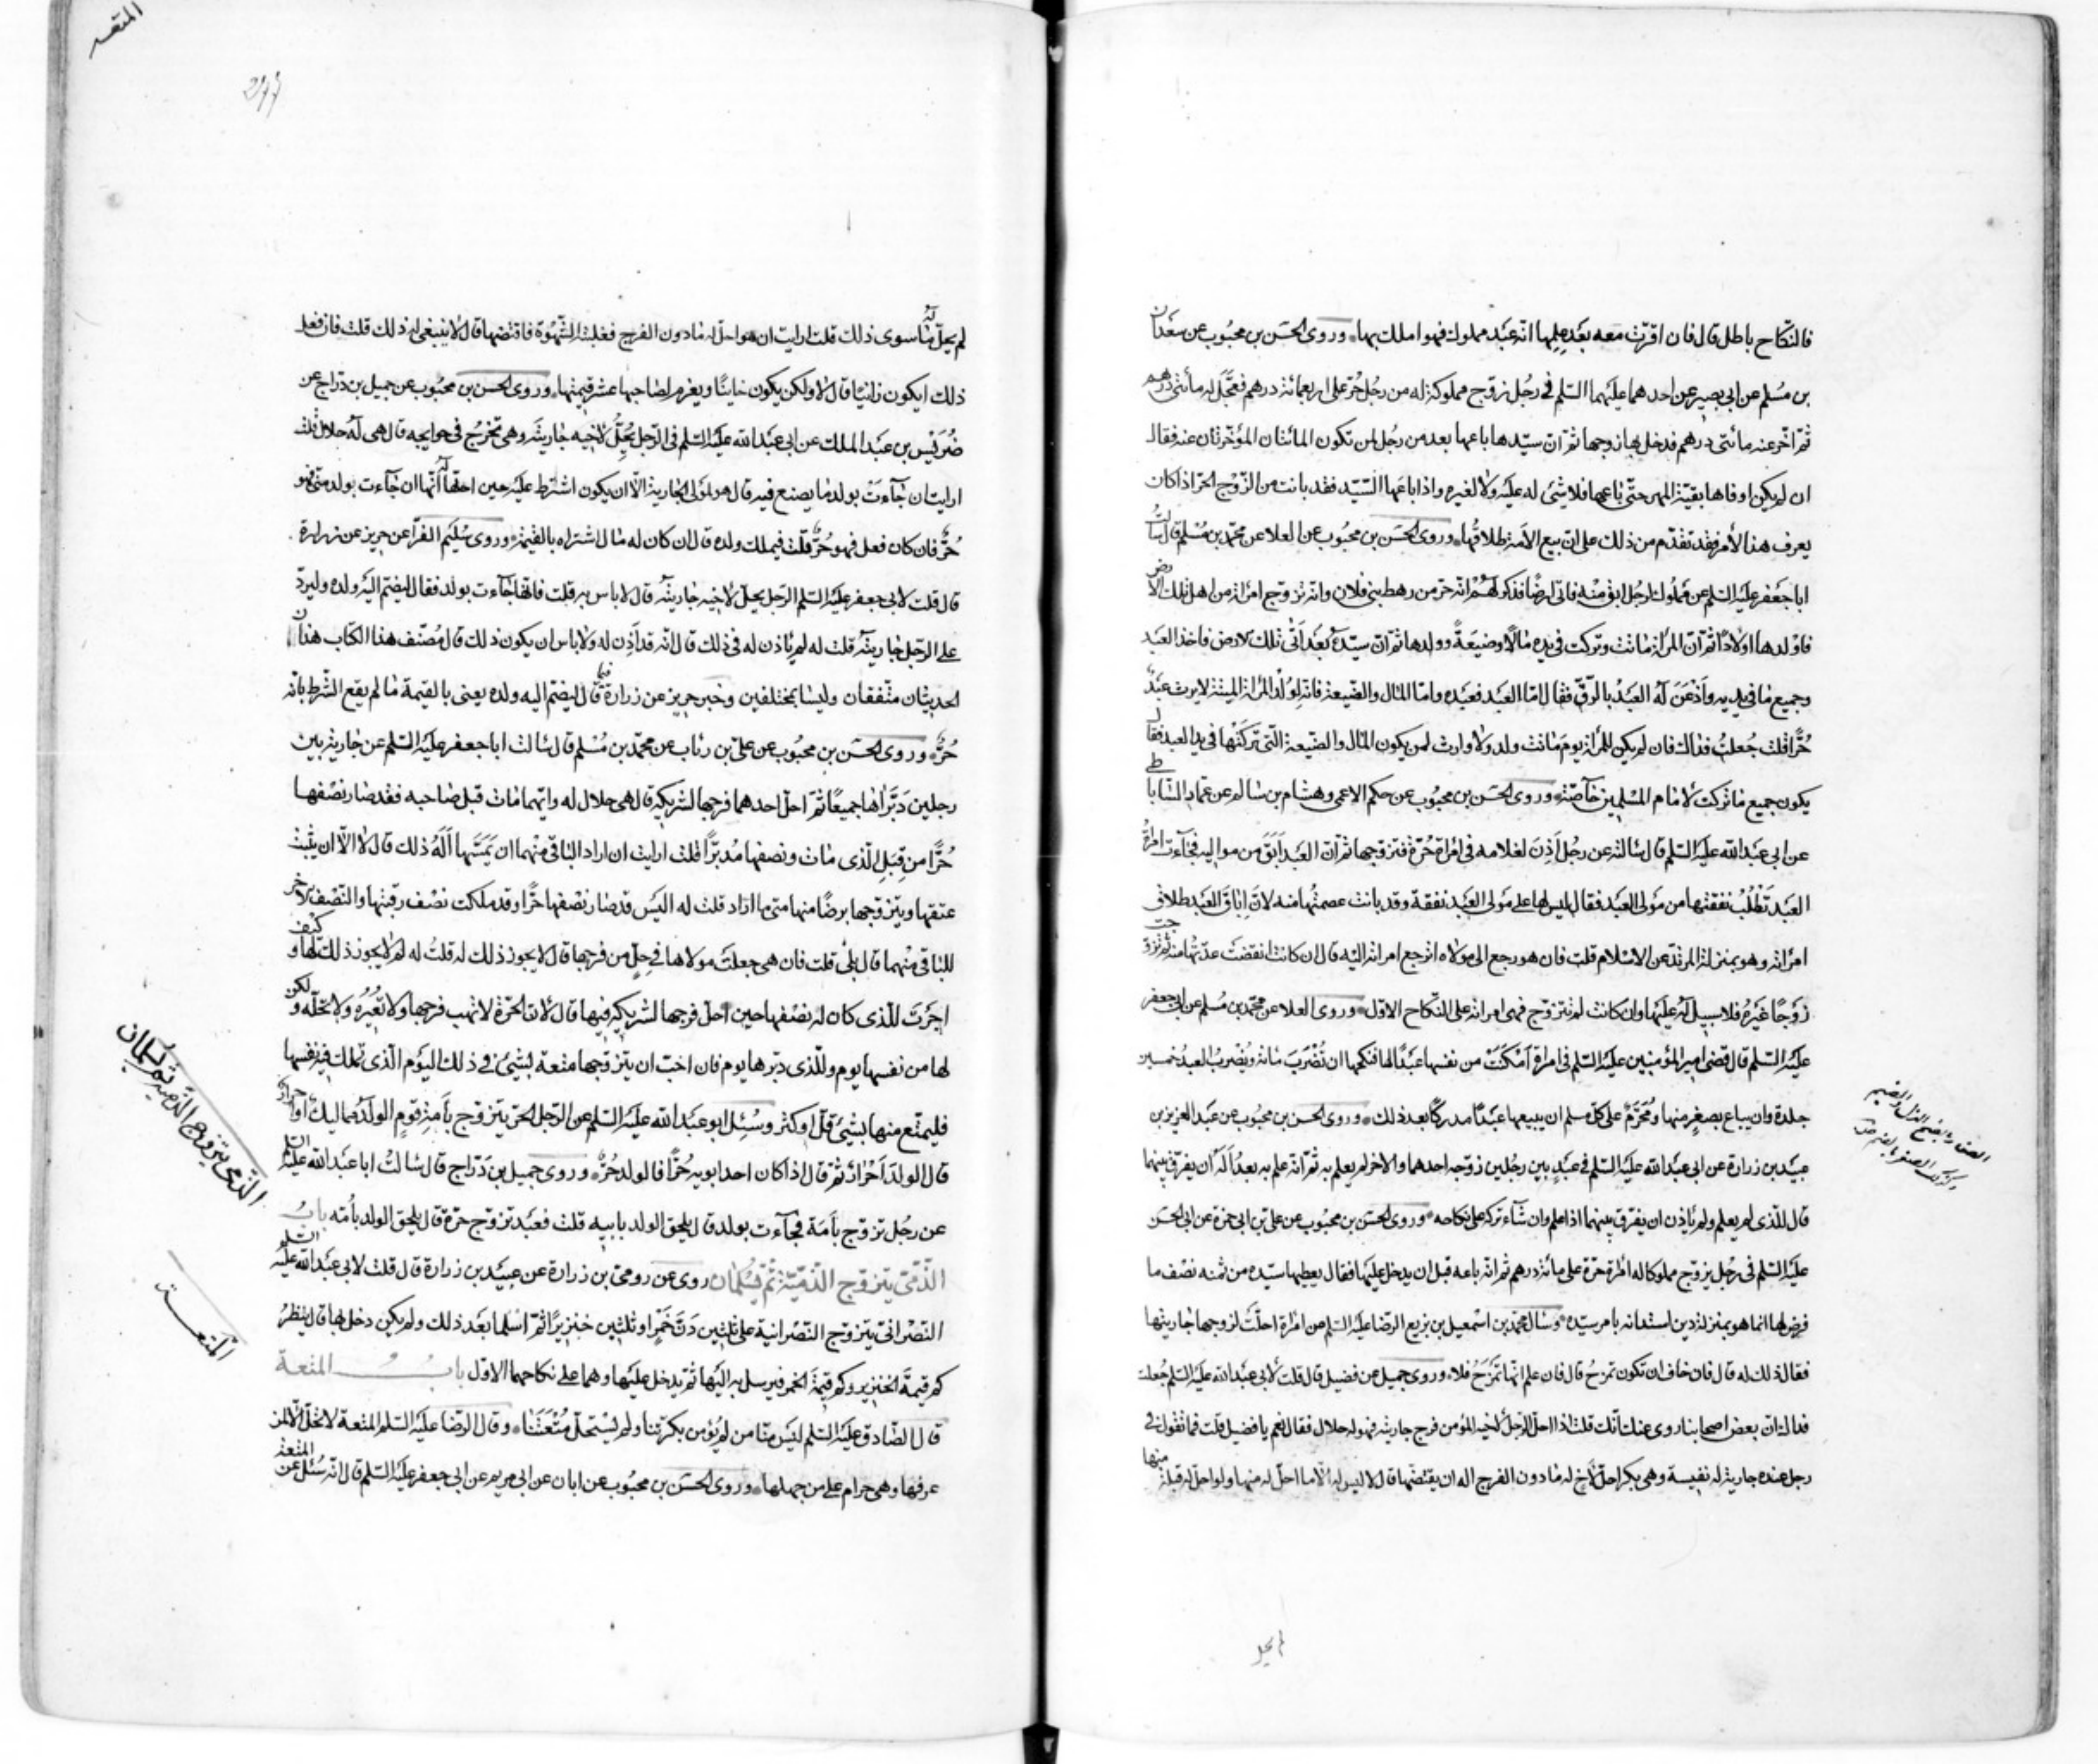 فالنكاح باطل قال فان اقرّت معه بعد علمها انه عبد مملوك فهو املك بها وروى الحسن بن محبوب عن سعدان
بن مسلم عن ابى بصير عن احدهما عليهما السّلم فى رجل زوّج مملوكة له من رجل حرّ على اربعمائة درهم فعجّل له مأتى درهم
ثمّ اخّر عنه مأتى درهم فدخل بها زوجها ثمّ انّ سيّدها باعها بعد من رجل لمن تكون المائتان المؤخّرتان عنه فقال
ان لم يكن اوفاها بقيّة المهر حتّى باعها فلا شئ له عليه ولا لغيره واذا باعها السّيّد فقد بانت من الزّوج الحرّ اذا كان
يعرف هذا الأمر فقد تقدّم من ذلك على انّ بيع الأمة طلاقها وروى الحسن بن محبوب عن العلا عن محمّد بن مسلم قال سألت
ابا جعفر عليه السّلم عن مملوك لرجل ابق منه فاتى ارضا فذكر لهم انه حرّ من رهط بنى فلان وانه تزوّج امرأة من اهل تلك الارض
فاولدها اولادا ثمّ انّ المرأة ماتت وتركت فى يده مالا وضيعة وولدها ثمّ انّ سيّده بعد اتى تلك الارض فاخذ العبد
وجميع ما فى يديه واذعن له العبد بالرّقّ فقال امّا العبد فعبده وامّا المال والضّيعة فانه لولد المرأة الميّتة لا يرث عبد
حرّا قلت جعلت فداك فان لم يكن للمرأة يوم ماتت ولد ولا وارث لمن يكون المال والضّيعة الّتى تركتها فى يد العبد فقال
يكون جميع ما تركت لامام المسلمين خاصّة وروى الحسن بن محبوب عن حكم الاعمى وهشام بن سالم عن عمّار السّاباطى
عن ابى عبد الله عليه السّلم قال سألته عن رجل اذن لغلامه فى امرأة حرّة فتزوّجها ثمّ انّ العبد ابق من مواليه فجاءت امرأة
العبد تطلب نفقتها من مولى العبد فقال ليس لها على مولى العبد نفقة وقد بانت عصمتها منه لانّ اباق العبد طلاق
امرأته وهو بمنزلة المرتدّ عن الاسلام قلت فان هو رجع الى مولاه اترجع امرأته اليه قال ان كانت انقضت عدّتها منه ثمّ تزوجت
زوجا غيره فلا سبيل له عليها وان كانت لم تتزوّج فهى امرأته على النّكاح الاوّل وروى العلا عن محمّد بن مسلم عن ابى جعفر
عليه السّلم قال قضى امير المؤمنين عليه السّلم فى امرأة امكنت من نفسها عبدا لها فنكحها ان تضرب مائة ويضرب العبد خمسين
جلدة وان يباع بصغر منها ومحرّم على كلّ مسلم ان يبيعها عبدا مدركا بعد ذلك وروى الحسن بن محبوب عن عبد العزيز بن
عبيد بن زرارة عن ابى عبد الله عليه السّلم فى عبد بين رجلين زوّجه احدهما والاخر لم يعلم به ثمّ انه علم به بعد أله ان يفرّق بينهما
قال للّذى لم يعلم ولم ياذن ان يفرّق بينهما اذا علم وان شاء تركه على نكاحه وروى الحسن بن محبوب عن علىّ بن ابى حمزة عن ابى الحسن
عليه السّلم فى رجل يزوّج مملوكا له امرأة حرّة على مائة درهم ثم انه باعه قبل ان يدخل عليها فقال يعطيها سيّده من ثمنه نصف ما
فرض لها انما هو بمنزلة دين استدانه بامر سيّده وسأل محمّد بن اسمعيل بن بزيع الرّضا عليه السّلم عن امرأة احلّت لزوجها جاريتها
فقال ذلك له قال فان خاف ان تكون تمزح قال فان علم انها تمزح فلا وروى جميل عن فضيل قال قلت لابى عبد الله عليه السّلم جعلت
فداك انّ بعض اصحابنا روى عنك انّك قلت اذا احلّ الرّجل لاخيه المؤمن فرج جاريته فهو له حلال فقال نعم يا فضيل قلت فما تقول فى
رجل عنده جارية له نفيسة وهى بكر احلّ لاخ له ما دون الفرج اله ان يقتضّها قال لا ليس له الّا ما احلّ له منها ولو احلّ له قبلة منها
المتعه
لم يحلّ له ما سوى ذلك قلت ارايت ان هو احلّ له ما دون الفرج فغلبته الشّهوة فاقتضّها قال لا ينبغى له ذلك قلت فان فعل
ذلك ايكون زانيا قال لا ولكن يكون خاينا ويغرم لصاحبها عشر قيمتها وروى الحسن بن محبوب عن جميل بن درّاج عن
ضريس بن عبد الملك عن ابى عبد الله عليه السّلم فى الرّجل يحلّ لاخيه جاريته وهى تخرج فى حوايجه قال هى له حلال قلت
ارايت ان جاءت بولد ما يصنع فيه قال هو لمولى الجارية الّا ان يكون اشترط عليه حين احلّها له انّها ان جاءت بولد منّى فهو
حرّ فان كان فعل فهو حرّ قلت فيملك ولده قال ان كان له مال اشتراه بالقيمة وروى سليم الفرّا عن حريز عن زرارة
قال قلت لابى جعفر عليه السّلم الرّجل يحلّ لاخيه جاريته قال لا باس به قلت فانّها جاءت بولد فقال ليضمّ اليه ولده وليردّ
على الرّجل جاريته قلت له لم ياذن له فى ذلك قال انّه قد اذن له ولا باس ان يكون ذلك قال مصنّف هذا الكتاب هذان
الحديثان متّفقان وليسا بمختلفين وخبر حريز عن زرارة فيما قال ليضمّ اليه ولده يعنى بالقيمة ما لم يقع الشرط بانّه
حرّ وروى الحسن بن محبوب عن علىّ بن رئاب عن محمّد بن مسلم قال سالت ابا جعفر عليه السّلم عن جارية بين
رجلين دبّراها جميعا ثمّ احلّ احدهما فرجها لشريكه قال هى حلال له وايّهما مات قبل صاحبه فقد صار نصفها
حرّا من قبل الّذى مات ونصفها مدبّرا قلت ارايت ان اراد الباقى منهما ان يمسّها أله ذلك قال لا الّا ان يثبت
عتقها ويتزوّجها برضا منها متى ما اراد قلت له اليس قد صار نصفها حرّا وقد ملكت نصف رقبتها والنّصف الاخر
للباقى منهما قال بلى قلت فان هى جعلت مولاها فى حلّ من فرجها قال لا يجوز ذلك له قلت له لم لا يجوز ذلك لها وكيف
اجزت للّذى كان له نصفها حين احلّ فرجها لشريكه فيها قال لانّ الحرّة لا تهب فرجها ولا تعيره ولا تحلّله ولكن
لها من نفسها يوم وللّذى دبّرها يوم فان احبّ ان يتزوّجها متعة بشئ فى ذلك اليوم الّذى تملك فيه نفسها
فليمتّع منها بشئ قلّ او كثر وسئل ابو عبد الله عليه السّلم عن الرّجل الحرّ يتزوّج بامة قوم الولد مماليك او احرار
قال الولد احرار ثمّ قال اذا كان احد ابويه حرّا فالولد حرّ وروى جميل بن درّاج قال سالت ابا عبد الله عليه السّلم
عن رجل تزوّج بامة فجاءت بولد قال يلحق الولد بابيه قلت فعبد تزوّج حرّة قال يلحق الولد بامّه باب
الذّمّى يتزوّج الذّمّيّة ثمّ يسلمان روى عن رومى بن زرارة عن عبيد بن زرارة قال قلت لابى عبد الله عليه السّلم
النّصرانى يتزوّج النّصرانية على ثلثين دنّ خمر او ثلثين خنزيرا ثمّ اسلما بعد ذلك ولم يكن دخل بها قال ينظر
كم قيمة الخنزير وكم قيمة الخمر فيرسل به اليها ثمّ يدخل عليها وهما على نكاحهما الاوّل باب المتعة
قال الصّادق عليه السّلم ليس منّا من لم يؤمن بكرّتنا ولم يستحلّ متعتنا وقال الرّضا عليه السّلم المتعة لا تحلّ الّا لمن
عرفها وهى حرام على من جهلها وروى الحسن بن محبوب عن ابان عن ابى مريم عن ابى جعفر عليه السّلم قال انّه سئل عن المتعة
الذمى يتزوج الذمية ثم يسلمان
المتعة